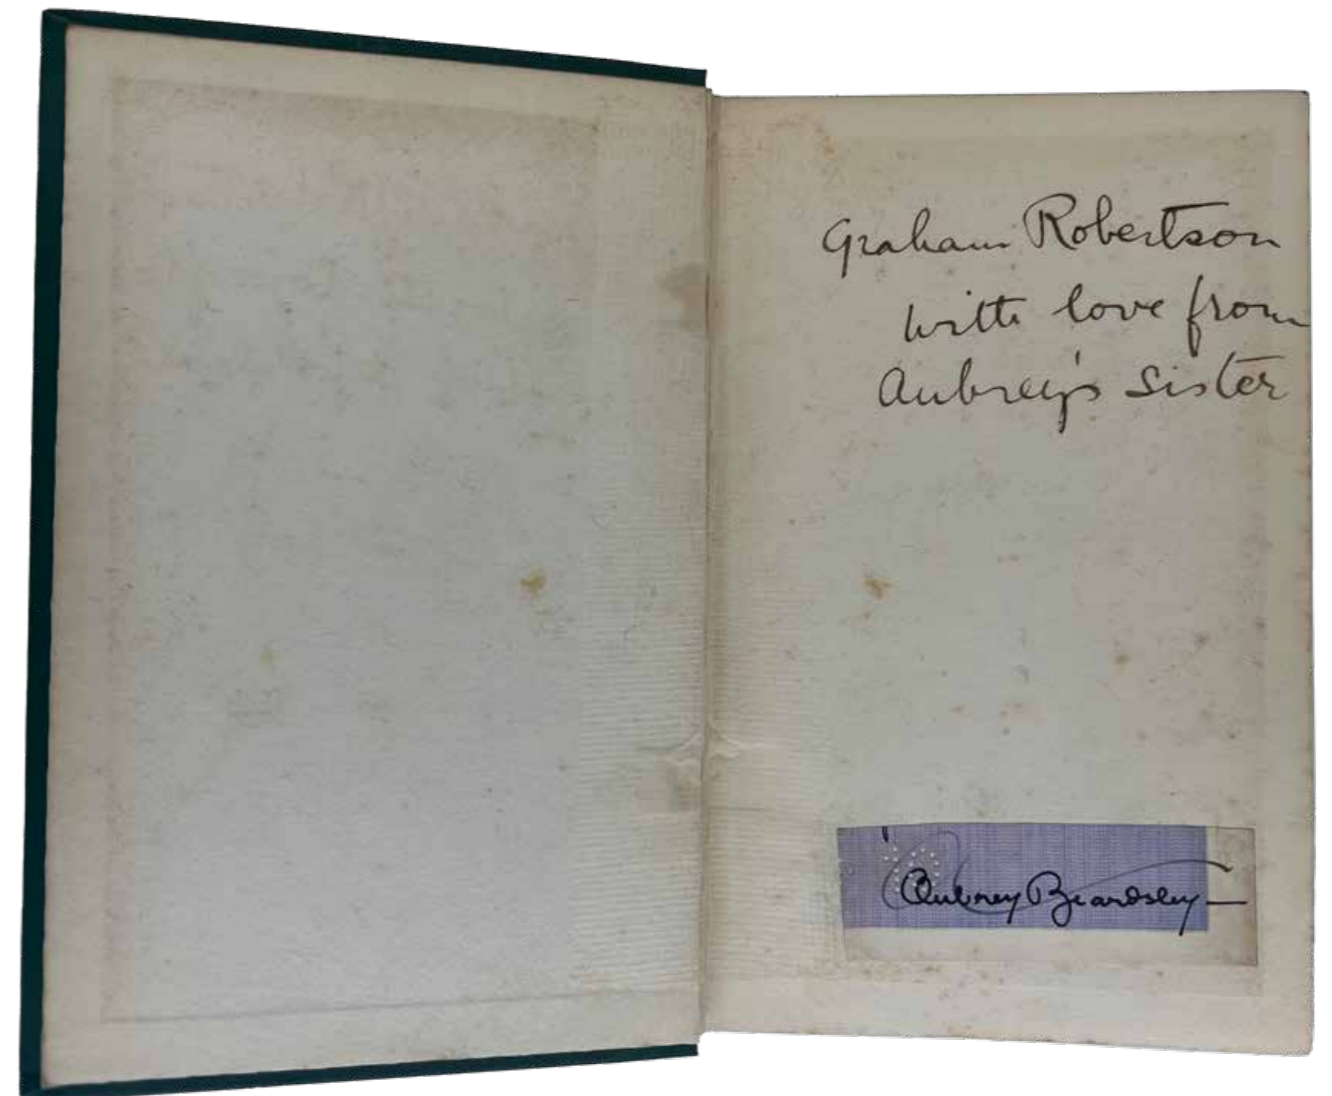 Graham Robertson
with love from
Aubrey's Sister
Aubrey Beardsley